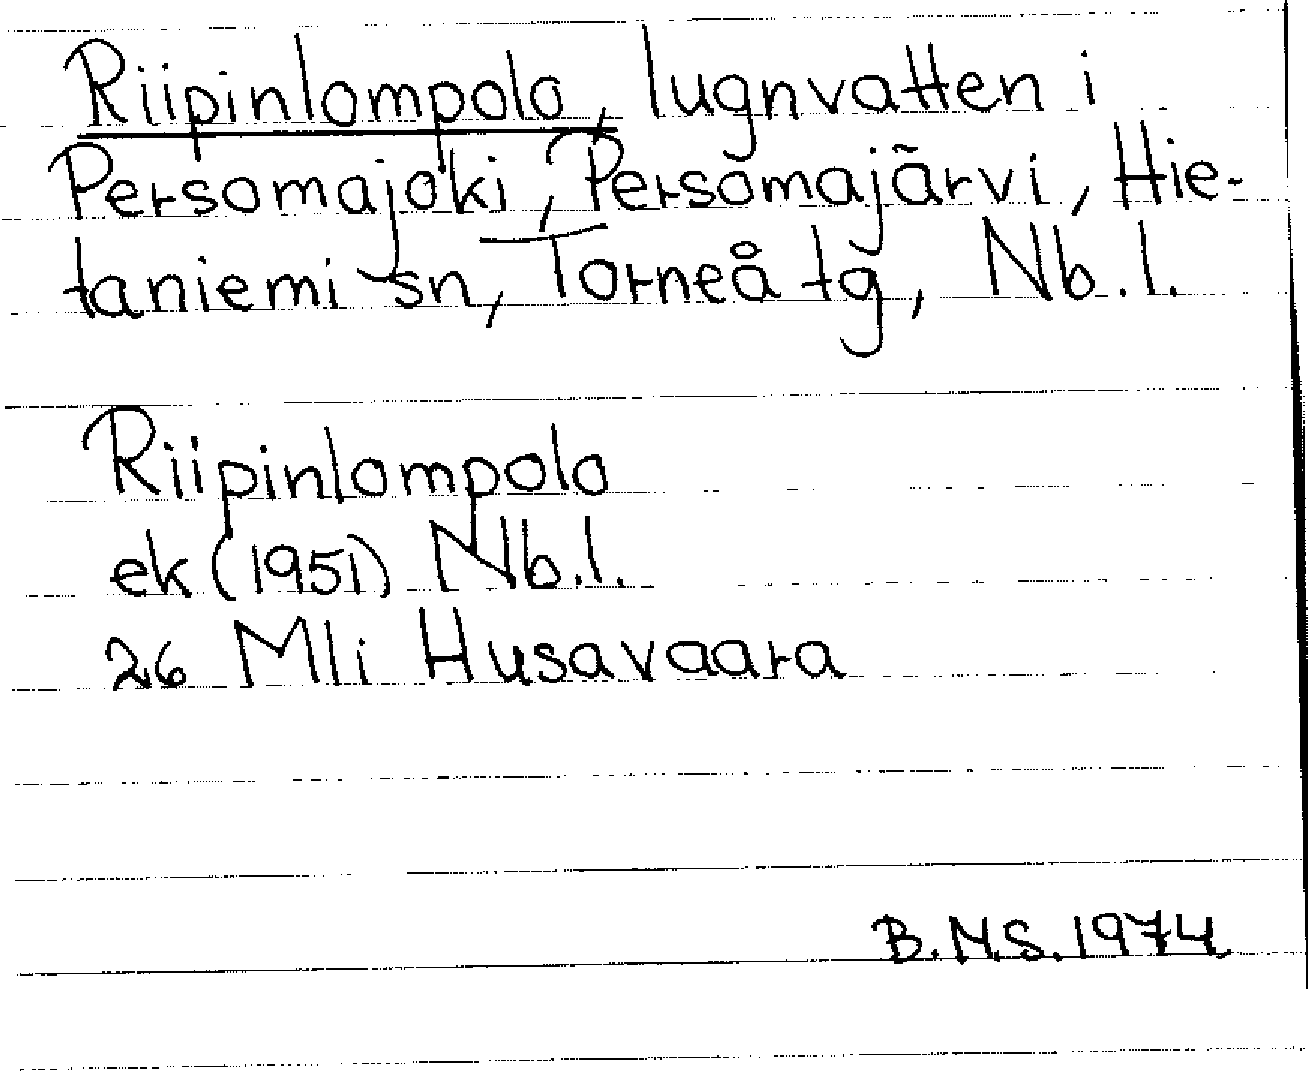 Riipinlompolo, lugnvatten i
Persomajoki, Persomajärvi, Hie-
taniemi sn, Torneå tg, Nb.l.
Riipinlompolo
ek (1951) Nb.l.
26 Mli Husavaara
B.N.S. 1974